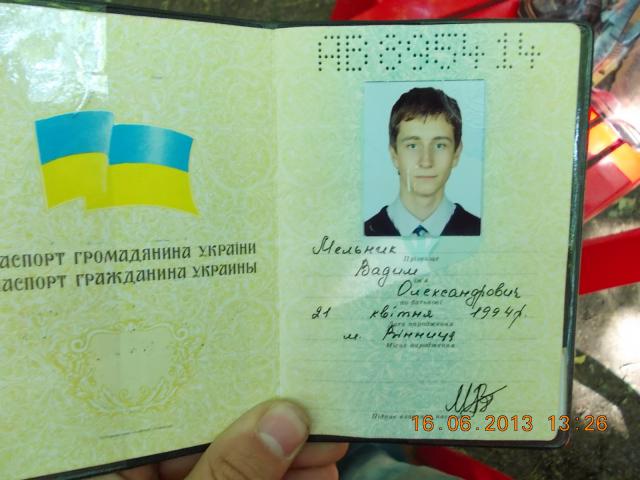 АСПОРТ ГРОМАДЯНИНА УКРАЇНИ
АСПОРТ ГРАЖДАНИНА УКРАИНЫ
АВ 895414
Мельник
Прізвище
Вадим
Ім'я
Олександрович
по батькові
21 квітня 1994р
Дата народження
м. Вінниця
Місце народження
Підпис
16.06.2013 13:26